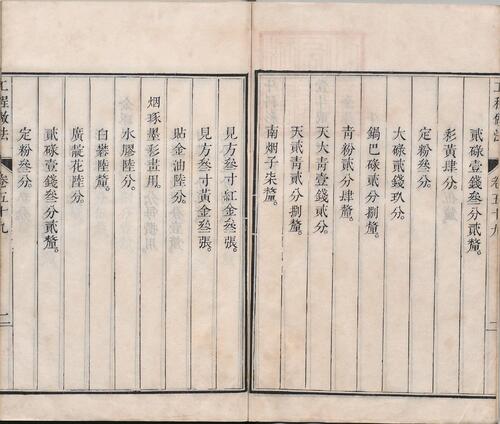 貳碌壹錢叄分貳釐。
彩黃肆分。
定粉叄分。
大碌貳錢玖分。
鍋巴碌貳錢貳分捌釐。
青粉貳分肆釐。
天大青壹錢貳分。
天貳青貳分捌釐。
南烟子柒釐。
見方叄寸紅金叄張。
見方叄寸黃金叄張。
貼金油陸分。
烟琢墨彩畫用。
水膠陸分。
白礬陸釐。
廣靛花陸分。
貳碌壹錢叄分貳釐。
定粉叄分。
工程做法
卷五十九
二